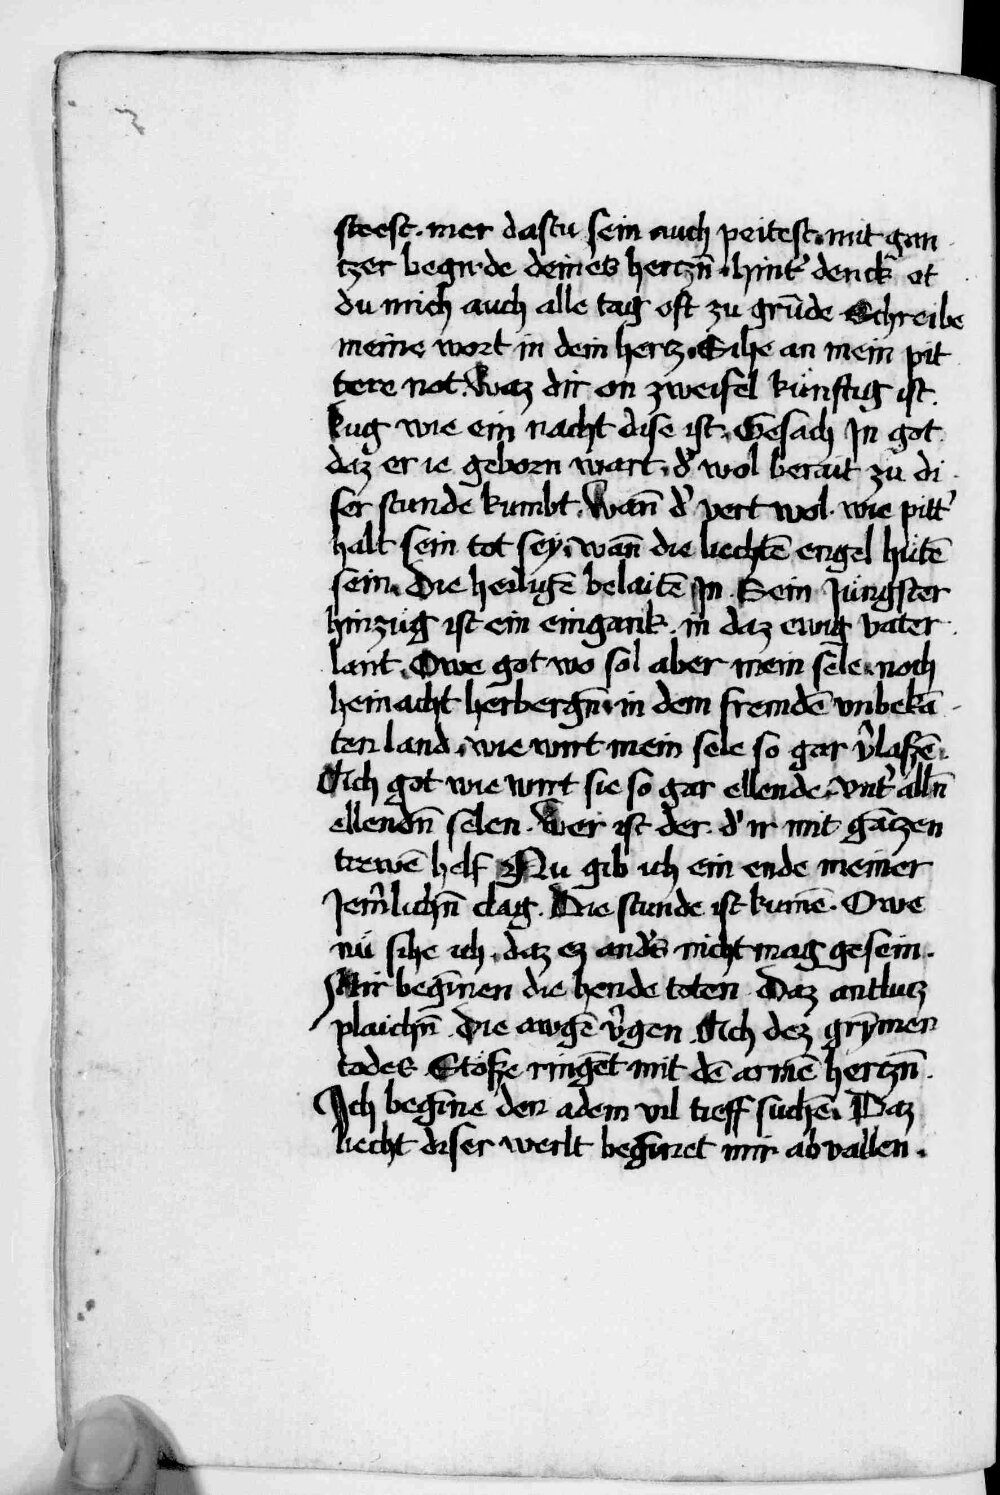 steest. mer dastu sein auch peitest. mit gan
tzer begirde deines hertzn̄. hint' denck ot
du mich auch alle tag oft zu grūde Schreibe
meine wort in dein hertz. Sihe an mein pit
tere not. Waz dir on zweifel künftig ist.
Lug wie ein nacht dise ist. Gesach In got
daz er ie geborn wart. d' wol berait zu di
ser stunde kumbt. Wan̄ d' vert wol. wie pitt'
halt sein tot sey. wan̄ die liechtē engel hütē
sein. Die heiligē belaitē In. Sein Jüngster
hinzüg ist ein eingank. in daz ewig vater
lant. Owe got wo sol aber mein sele. noch
heinacht herbergn̄. in dem fremdē vnbekā
ten land. wie wirt mein sele so gar v'laßē.
Ach got wie wirt sie so gar ellende. vnt' alln̄
ellendn̄ selen. Wer ist der. d' ir mit gāczen
trewē helf Nu gib ich ein ende meiner
Jem'lichn̄ clag. Die stunde ist kumē. Owe
nü sihe ich. daz ez and's nicht mag gesein.
Mir begīnen die hende toten. Daz antlutz
plaichn̄. Die awgē v'gen. Ach dez grȳmen
todes Stöße ringēt mit dē armē hertzn̄.
Ich begīne den adem vil tieff suchē. Daz
liecht diser werlt begīnet mir ab vallen.